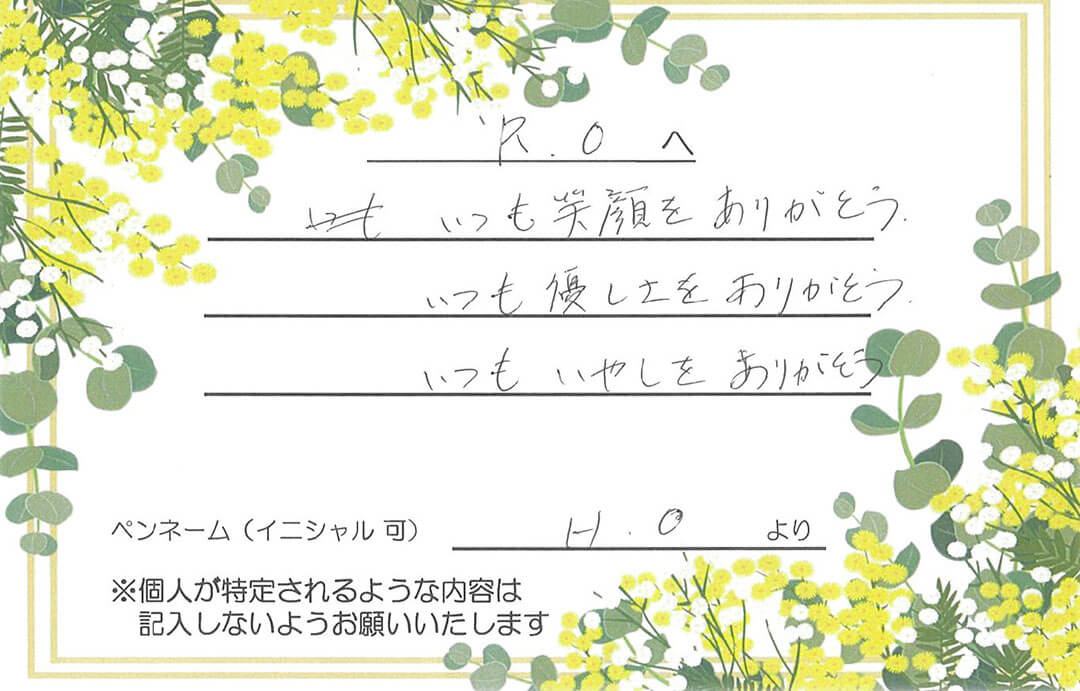 R.O へ
いつも笑顔をありがとう.
いつも優しさをありがとう.
いつも いやしを ありがとう
ペンネーム（イニシャル 可） H.O より
※個人が特定されるような内容は
記入しないようお願いいたします